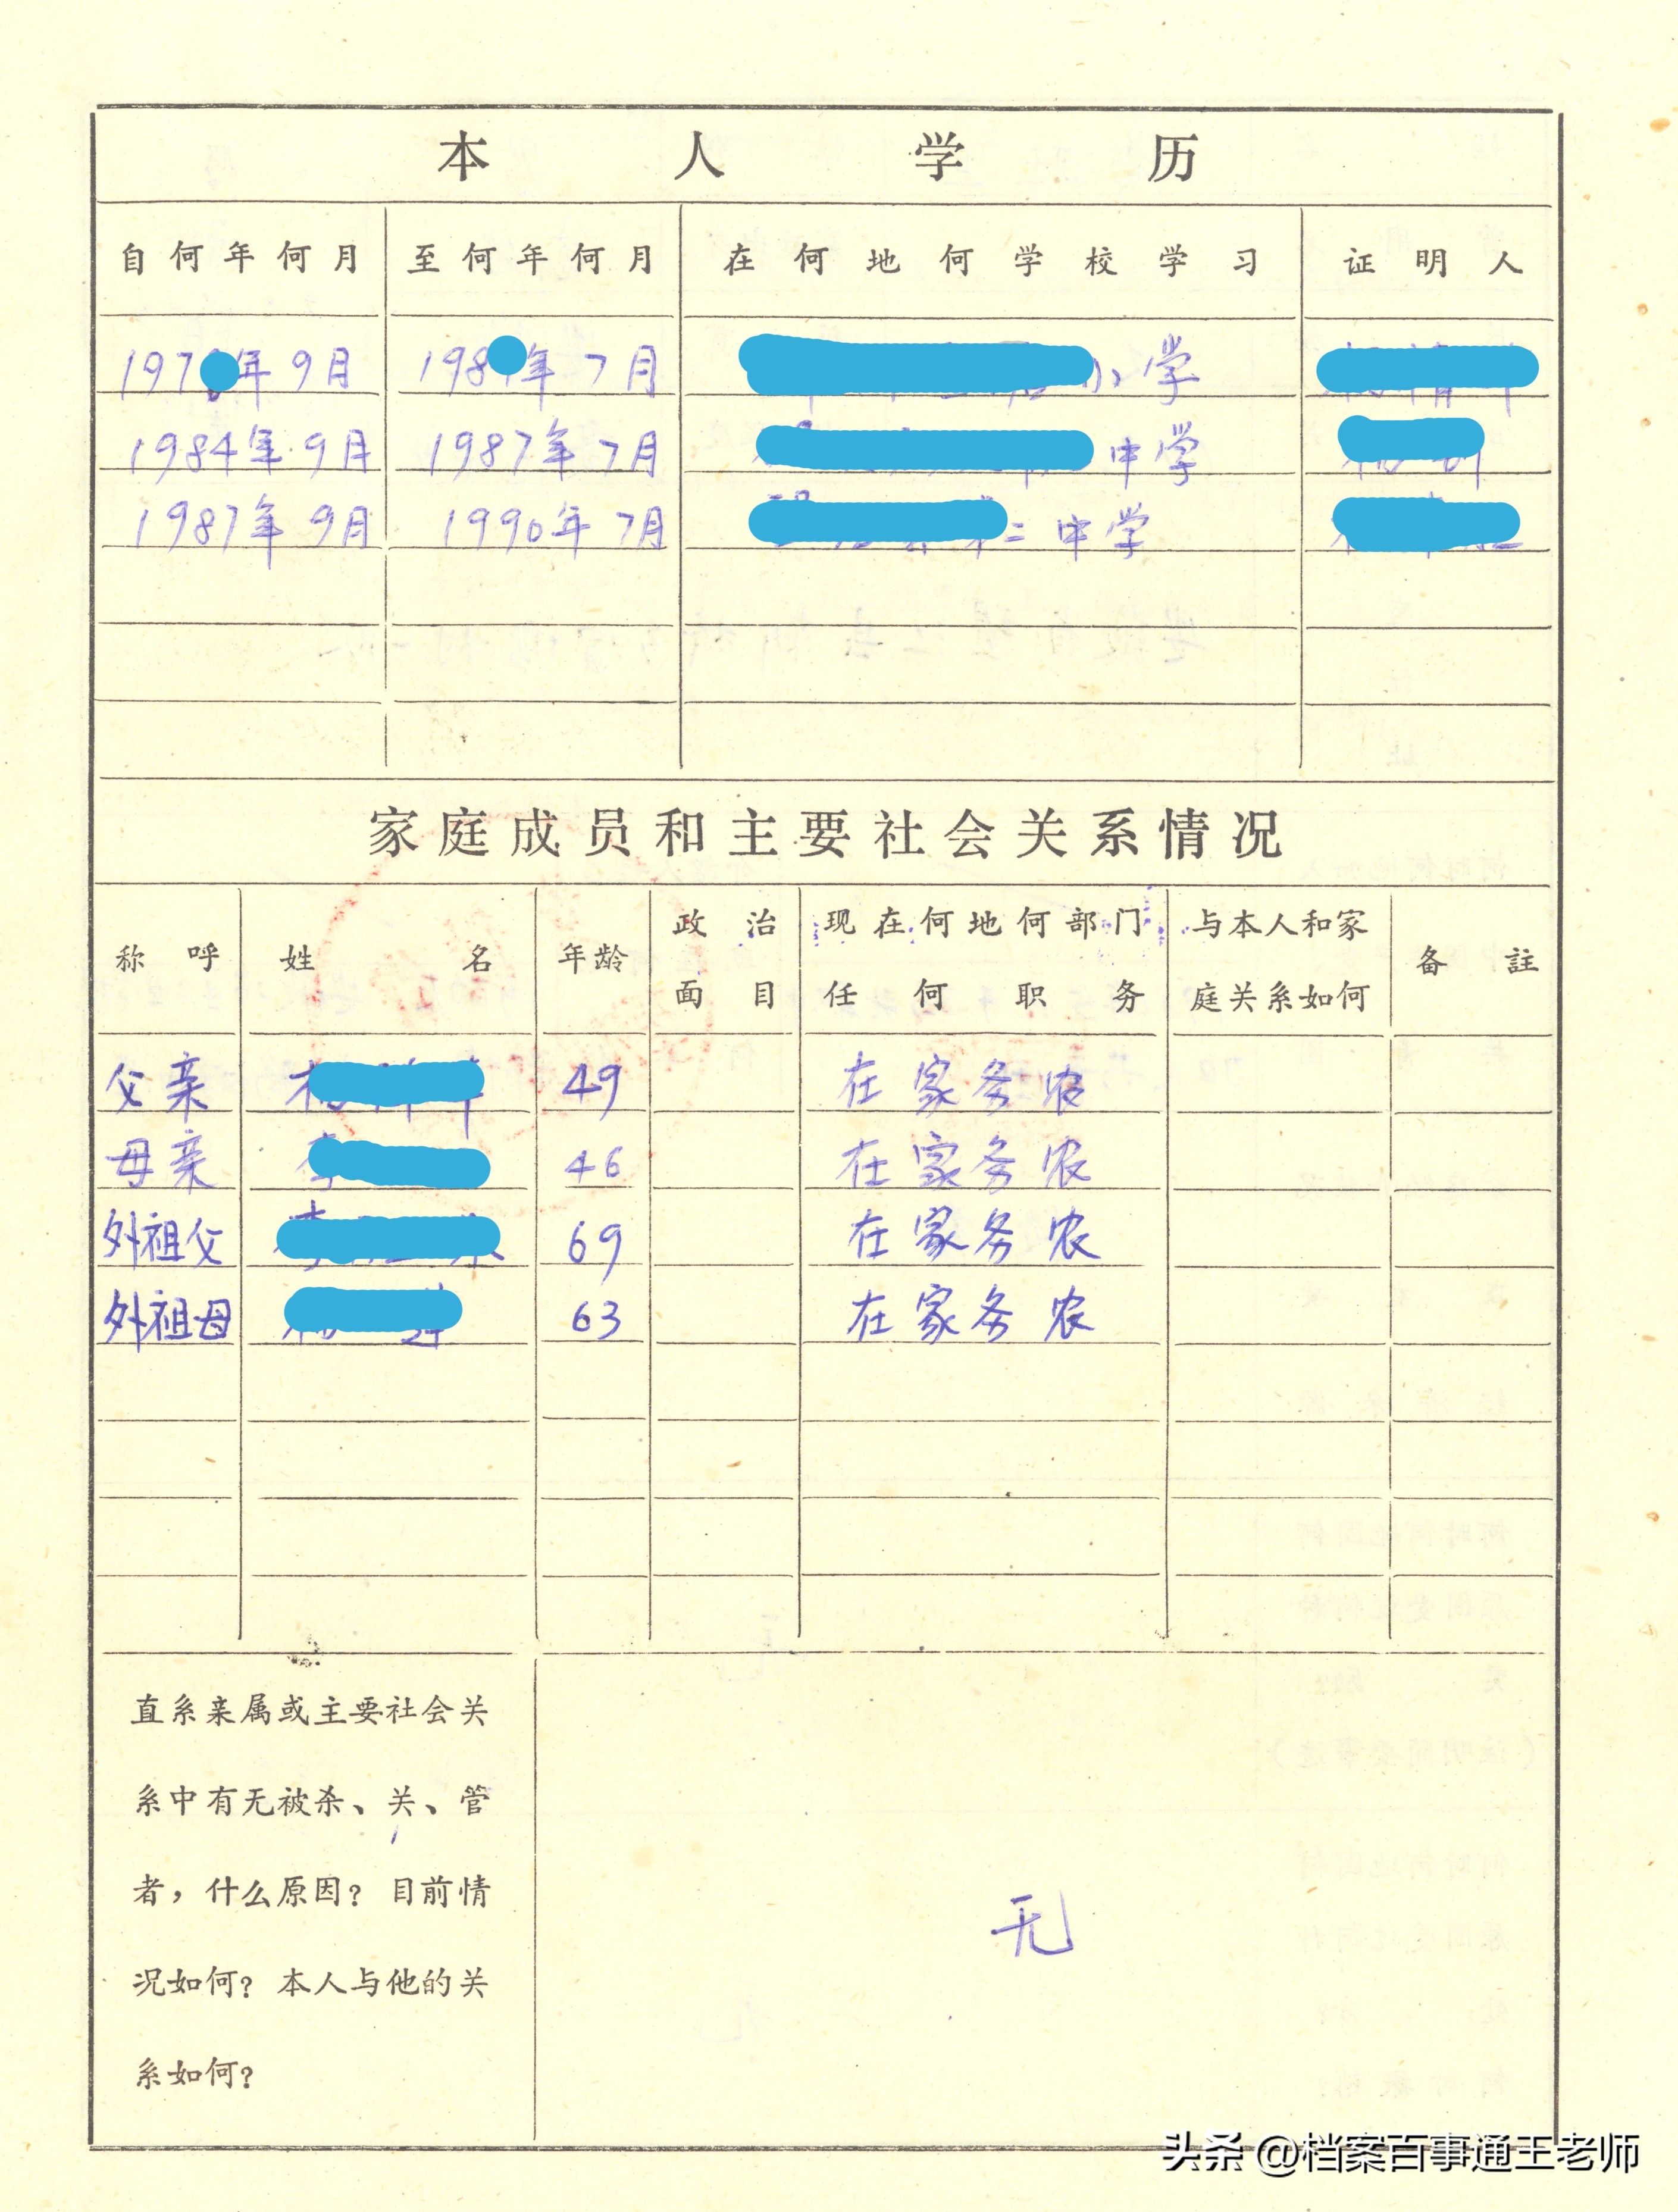 本人学历
自何年何月 至何年何月 在何地何学校学习 证明人
197 年9月 198 年7月 小学
1984年9月 1987年7月 中学
1987年9月 1990年7月 二中学
家庭成员和主要社会关系情况
称呼 姓名 年龄 政治面目 现在何地何部门任何职务 与本人和家庭关系如何 备註
父亲 49 在家务农
母亲 46 在家务农
外祖父 69 在家务农
外祖母 63 在家务农
直系亲属或主要社会关
系中有无被杀、关、管
者,什么原因?目前情
况如何?本人与他的关
系如何?
无
头条 @档案百事通王老师